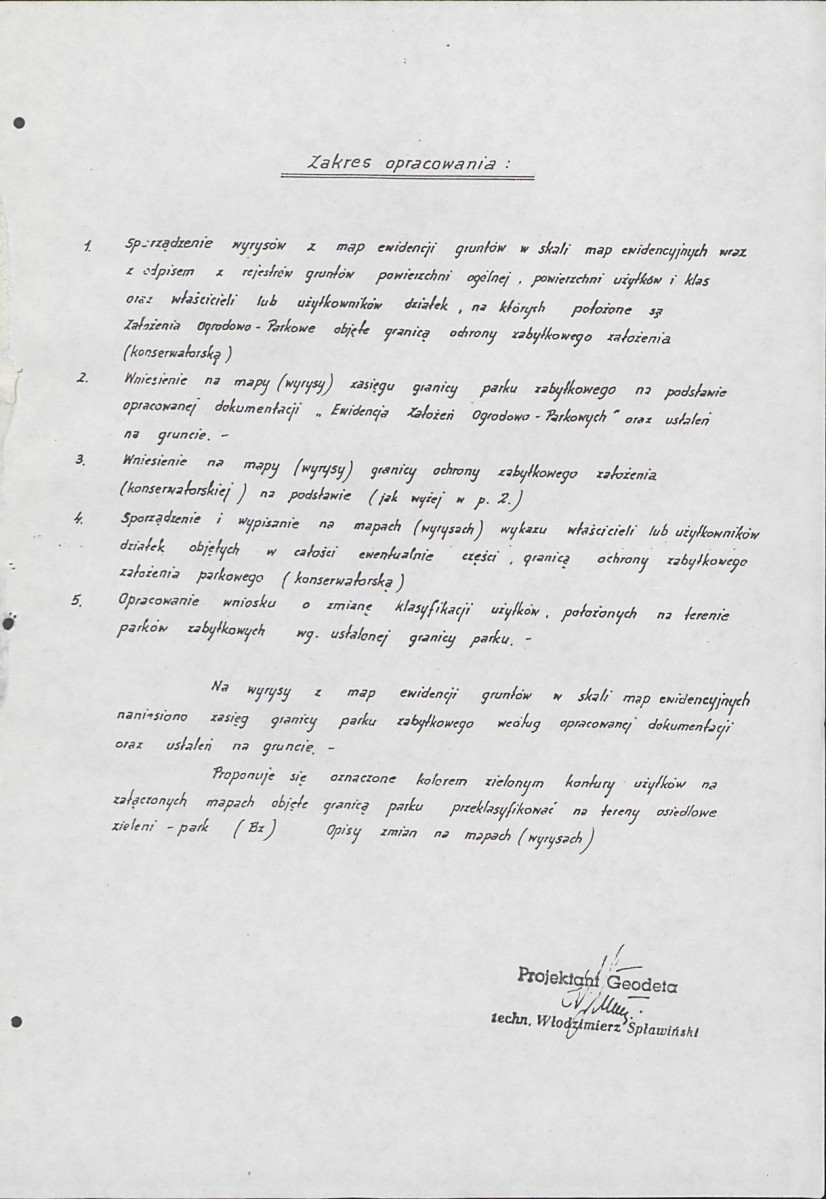 Zakres opracowania :
1. Sporządzenie wyrysów z map ewidencji gruntów w skali map ewidencyjnych wraz
z odpisem z rejestrów gruntów powierzchni ogólnej, powierzchni użytków i klas
oraz właścicieli lub użytkowników działek, na których położone są
Założenia Ogrodowo - Parkowe objęte granicą ochrony zabytkowego założenia
(konserwatorską)
2. Wniesienie na mapy (wyrysy) zasięgu granicy parku zabytkowego na podstawie
opracowanej dokumentacji „Ewidencja Założeń Ogrodowo - Parkowych" oraz ustaleń
na gruncie. -
3. Wniesienie na mapy (wyrysy) granicy ochrony zabytkowego założenia
(konserwatorskiej) na podstawie (jak wyżej w p. 2.)
4. Sporządzenie i wypisanie na mapach (wyrysach) wykazu właścicieli lub użytkowników
działek objętych w całości ewentualnie części, granicą ochrony zabytkowego
założenia parkowego (konserwatorską)
5. Opracowanie wniosku o zmianę klasyfikacji użytków, położonych na terenie
parków zabytkowych wg. ustalonej granicy parku. -
Na wyrysy z map ewidencji gruntów w skali map ewidencyjnych
naniesiono zasięg granicy parku zabytkowego według opracowanej dokumentacji
oraz ustaleń na gruncie. -
Proponuje się oznaczone kolorem zielonym kontury użytków na
załączonych mapach objęte granicą parku przeklasyfikować na tereny osiedlowe
zieleni - park (Bz) Opisy zmian na mapach (wyrysach)
Projektant Geodeta
techn. Włodzimierz Spławiński